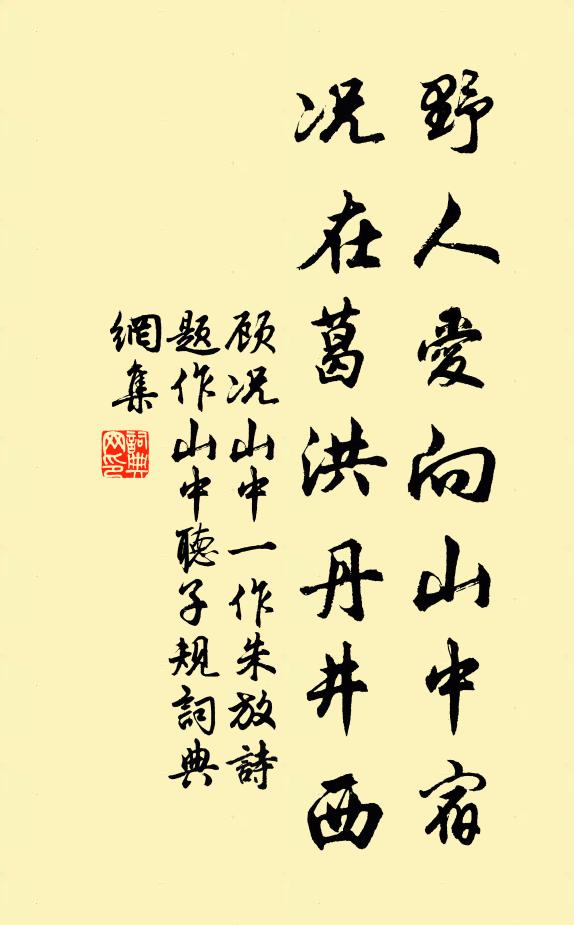 野人愛向山中宿
况在葛洪丹井西
顾况山中一作朱放詩
题作山中聴子规詞典
網集
詞典網印